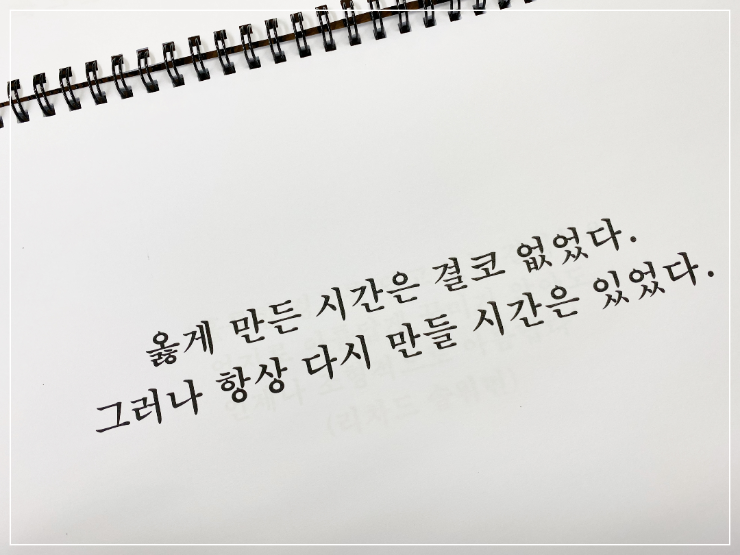 옳게 만든 시간은 결코 없었다.
그러나 항상 다시 만들 시간은 있었다.